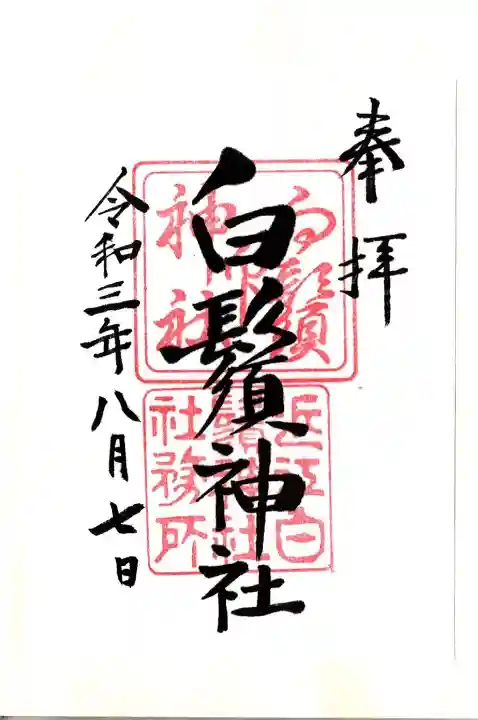 奉拝
白鬚神社
令和三年八月七日
白鬚
神社
近江白
鬚神社
社務所